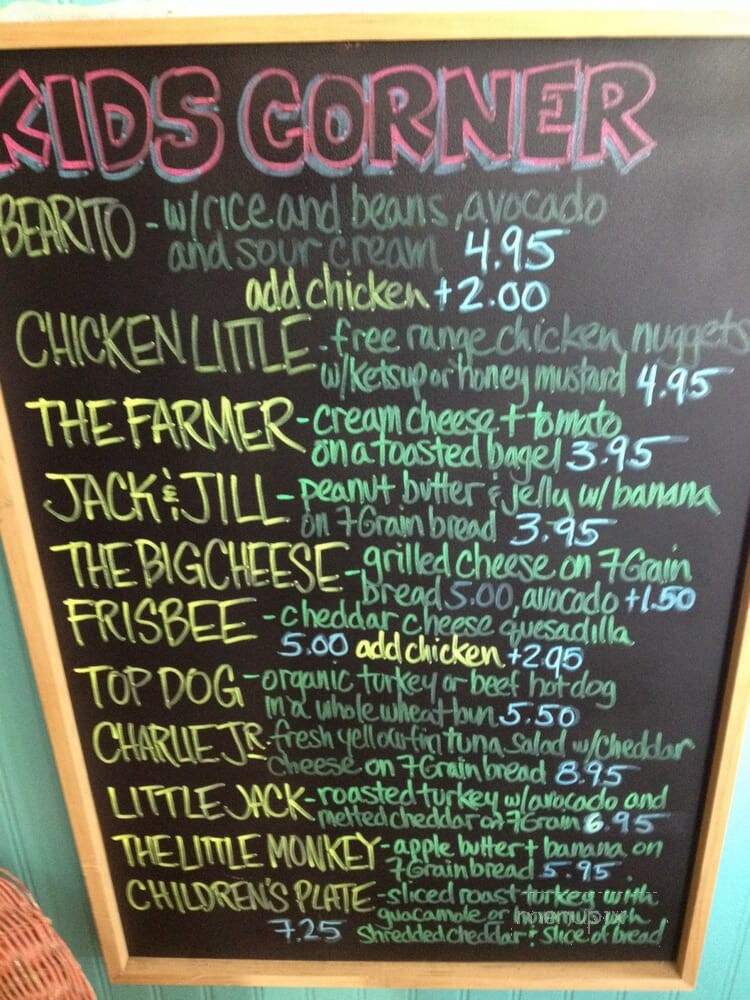 KIDS CORNER
BEARITO - w/rice and beans, avocado
and sour cream 4.95
add chicken +2.00
CHICKEN LITTLE - free range chicken nuggets
w/Ketsup or honey mustard 4.95
THE FARMER - cream cheese + tomato
on a toasted bagel 3.95
JACK & JILL - peanut butter & jelly w/ banana
on 7Grain bread 3.95
THE BIG CHEESE - grilled cheese on 7Grain
bread 5.00, avocado +1.50
FRISBEE - cheddar cheese quesadilla
5.00 add chicken +2.95
TOP DOG - organic turkey or beef hot dog
in a whole wheat bun 5.50
CHARLIE JR. - fresh yellowfin tuna salad w/Cheddar
Cheese on 7Grain bread 8.95
LITTLE JACK - roasted turkey w/avocado and
melted cheddar on 7Grain 6.95
THE LITTLE MONKEY - apple butter + banana on
7Grain bread 5.95
CHILDREN'S PLATE - sliced roast turkey with
guacamole or with
7.25 Shredded cheddar & slice of bread